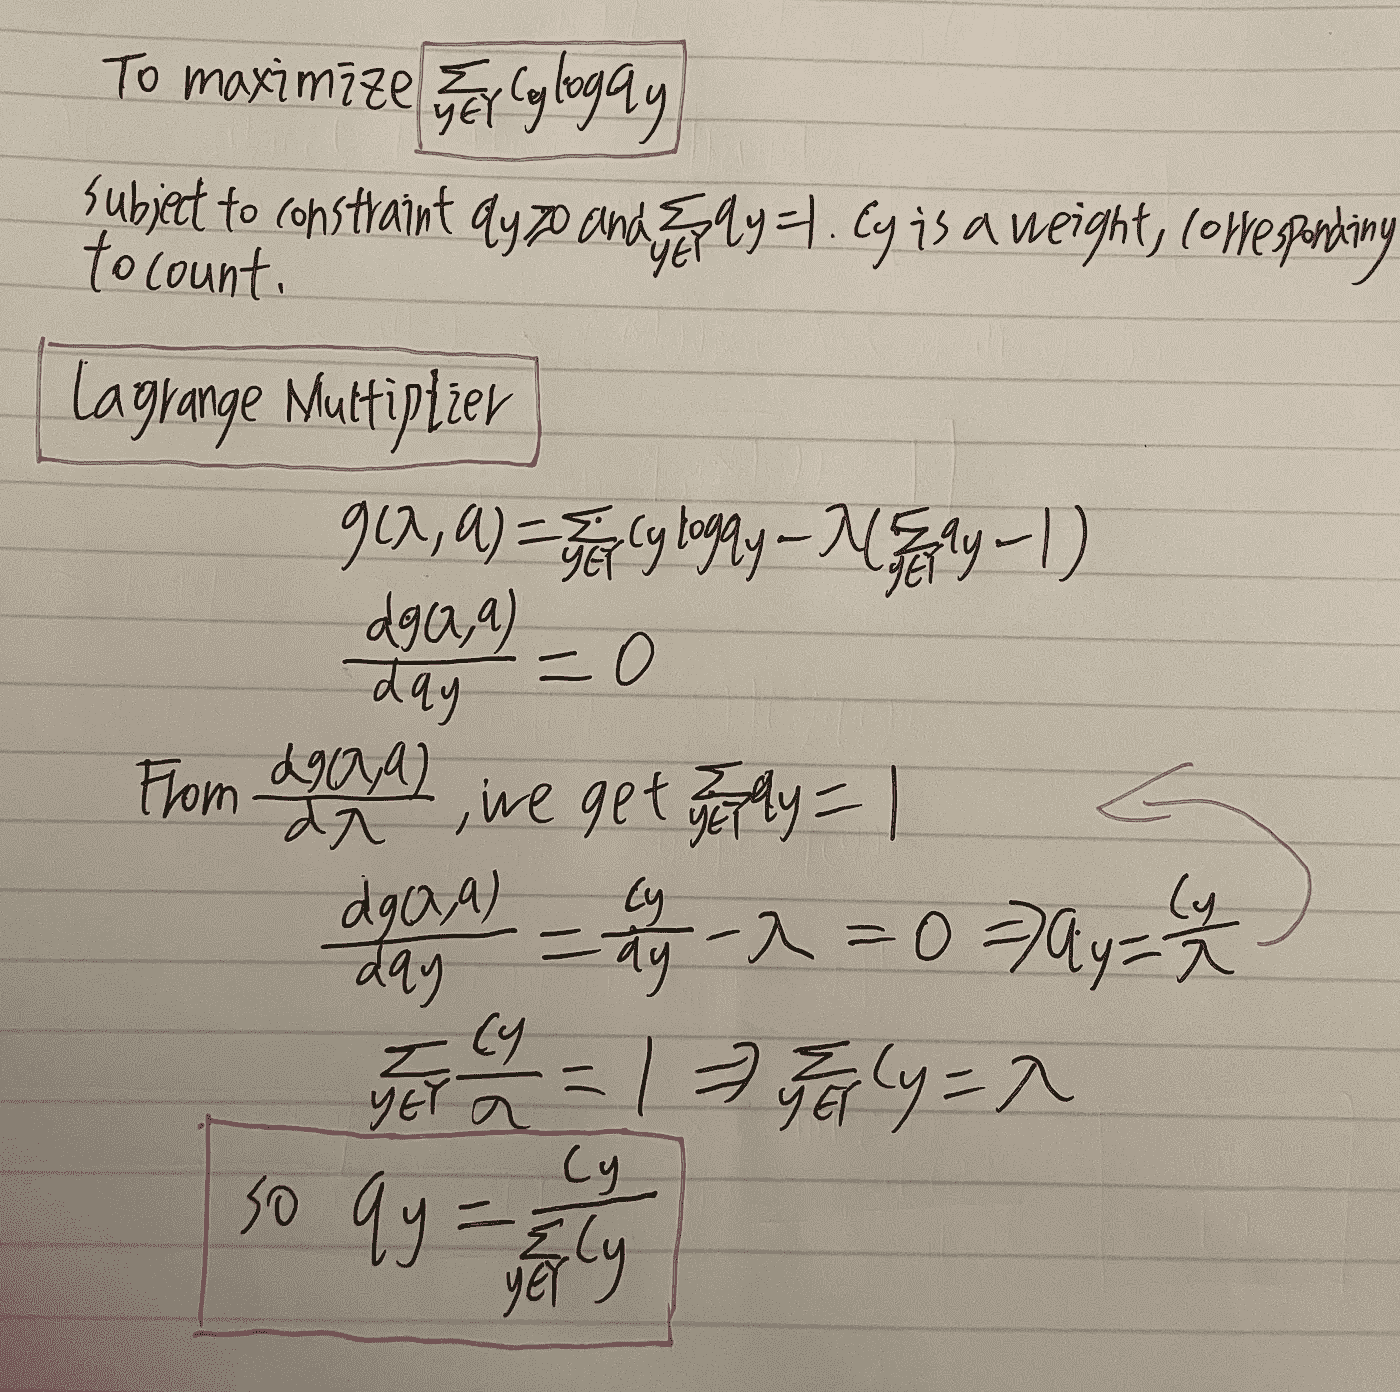 To maximize ∑_{y∈Y} C_y log q_y
subject to constraint q_y ≥ 0 and ∑_{y∈Y} q_y = 1. C_y is a weight, corresponding
to count.
Lagrange Multiplier
g(λ, q) = ∑_{y∈Y} C_y log q_y − λ(∑_{y∈Y} q_y − 1)
dg(λ,q)/dq_y = 0
From dg(λ,q)/dλ, we get ∑_{y∈Y} q_y = 1
dg(λ,q)/dq_y = C_y/q_y − λ = 0 ⇒ q_y = C_y/λ
∑_{y∈Y} C_y/λ = 1 ⇒ ∑_{y∈Y} C_y = λ
so q_y = C_y/∑_{y∈Y} C_y